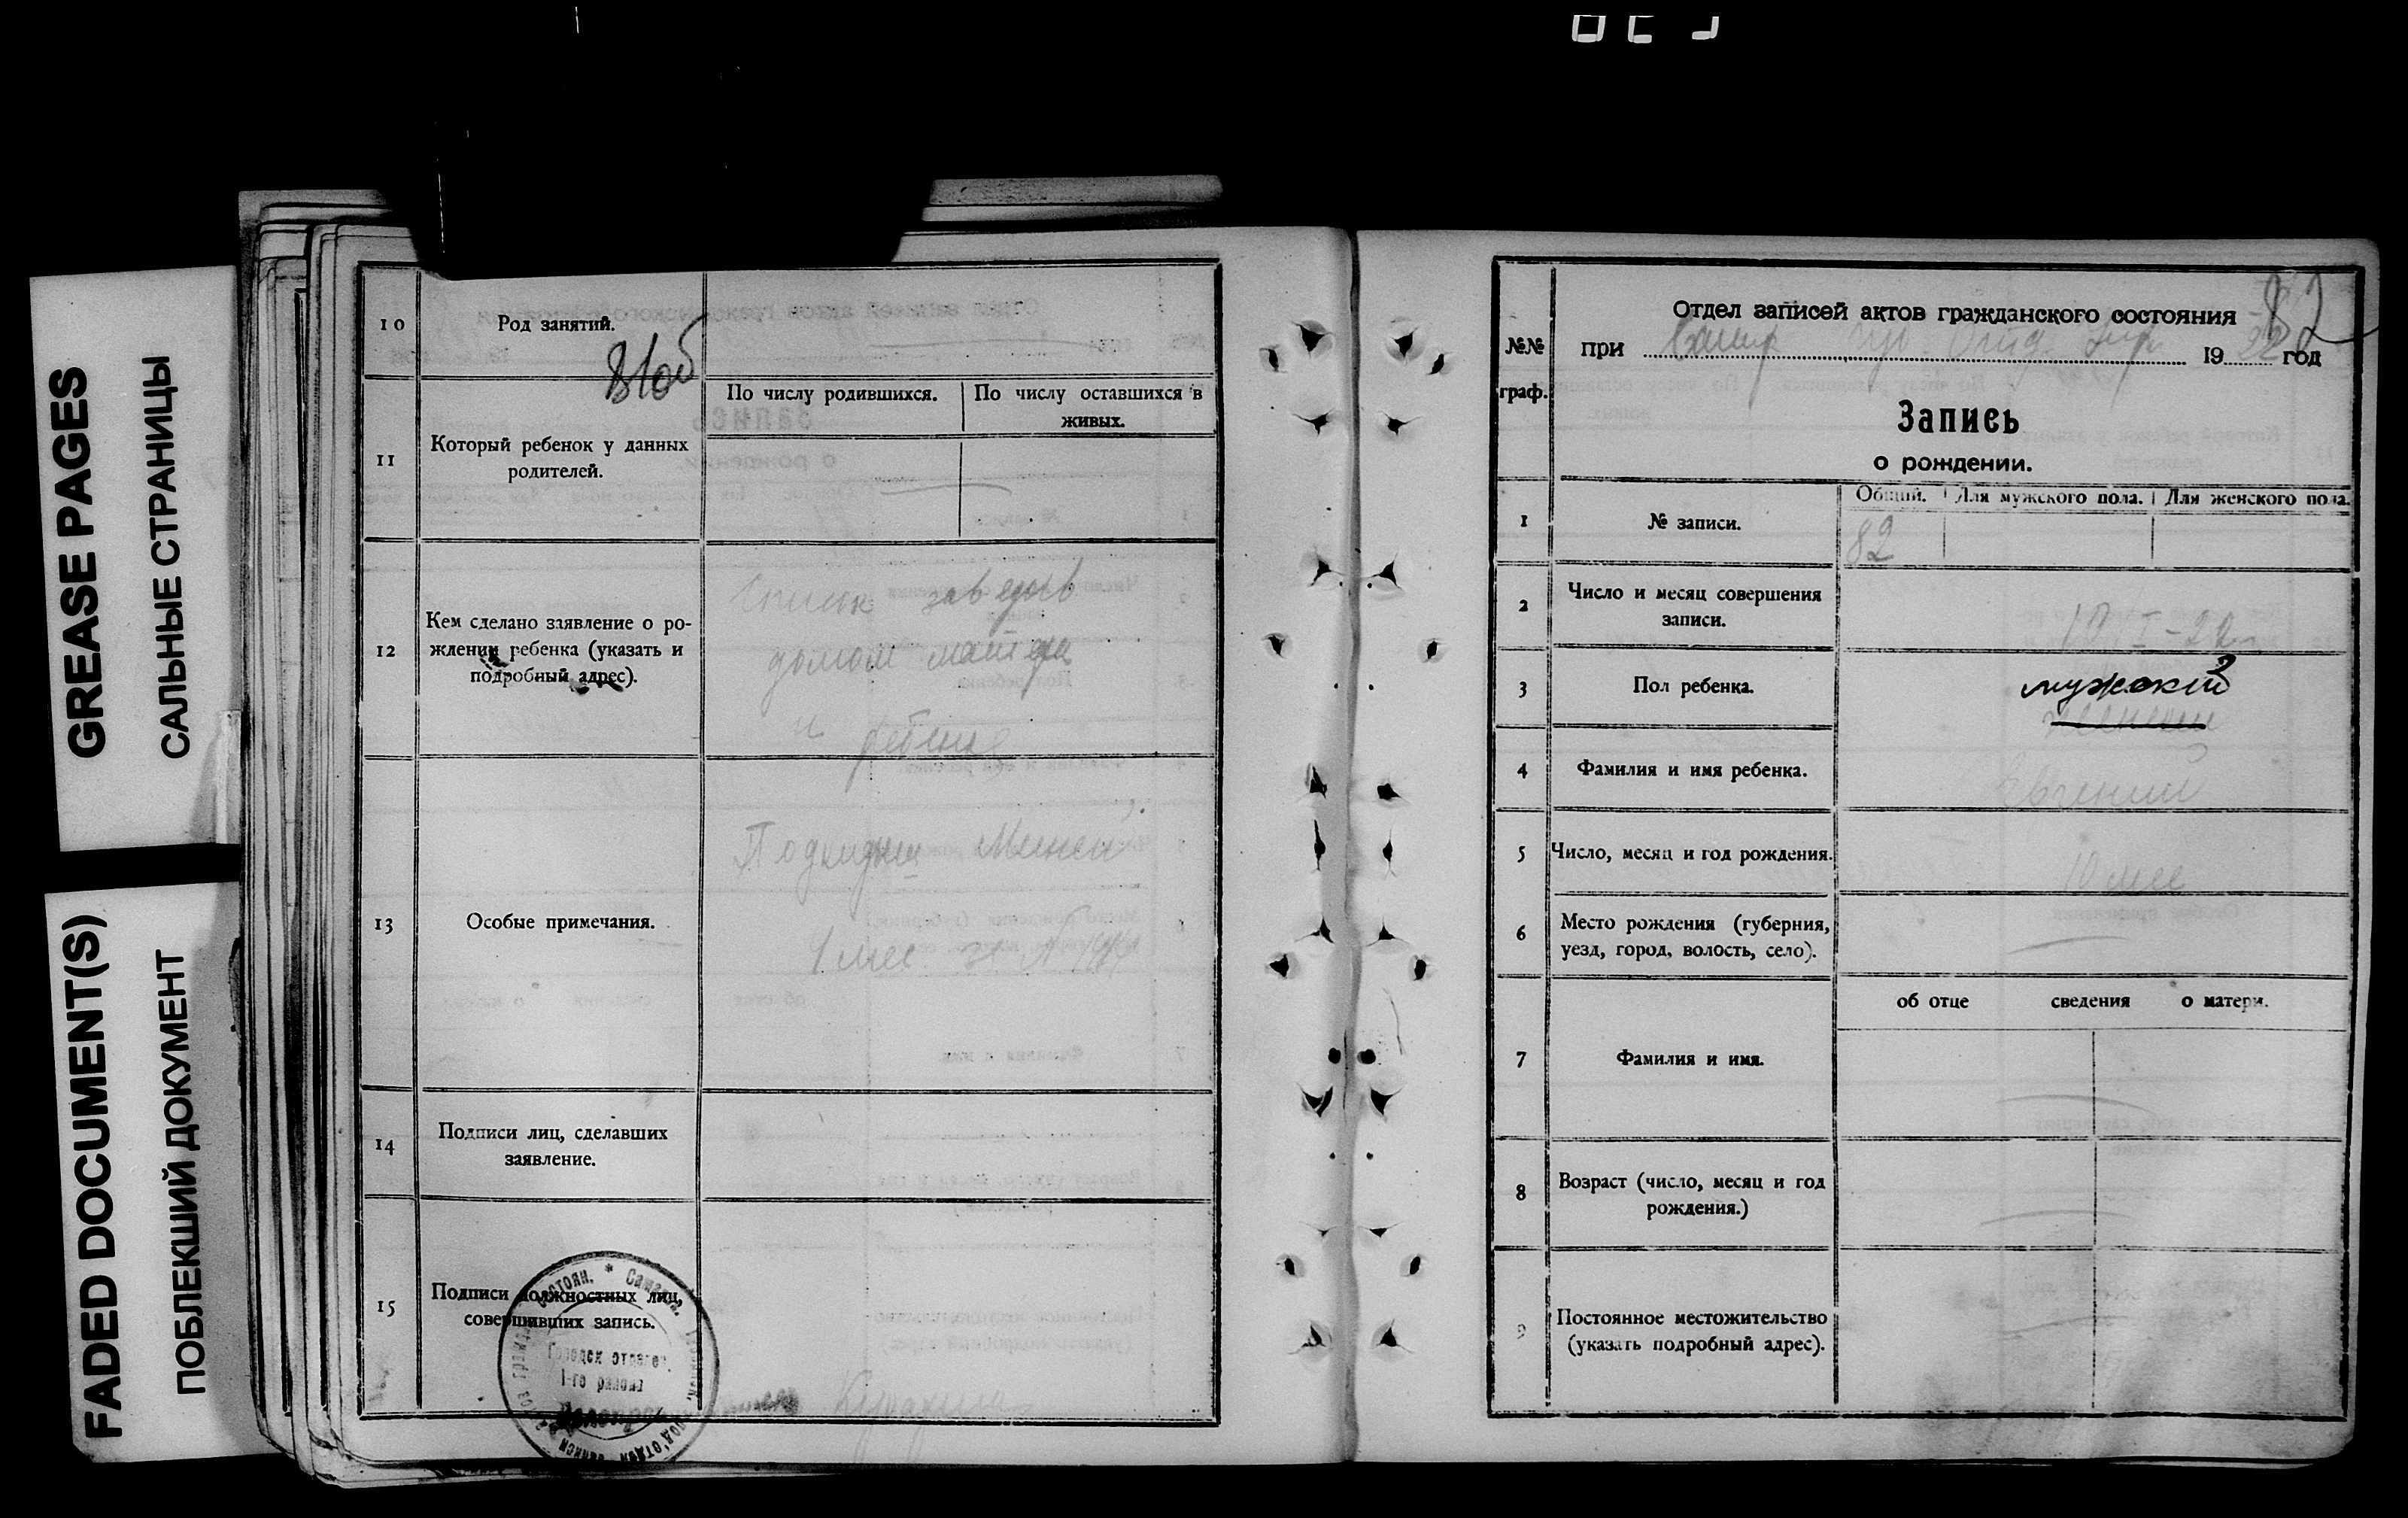 GREASE PAGES
САЛЬНЫЕ СТРАНИЦЫ
FADED DOCUMENT(S)
ПОБЛЕКШИЙ ДОКУМЕНТ
10
Род занятий.
81об
11
Который ребенок у данных
родителей.
По числу родившихся.
По числу оставшихся в
живых.
12
Кем сделано заявление о ро-
ждении ребенка (указать и
подробный адрес).
Список заведыв
домом матери
и ребенка
13
Особые примечания.
Подкидыш
1 мес
14
Подписи лиц, сделавших
заявление.
15
Подписи должностных лиц,
совершивших запись.
Городск отделен.
1-го района
№№
граф.
Отдел записей актов гражданского состояния
82
при
1922 год
Запись
о рождении.
1
№ записи.
Общий.
Для мужского пола.
Для женского пола.
82
2
Число и месяц совершения
записи.
3
Пол ребенка.
мужской
женский
4
Фамилия и имя ребенка.
Евгений
5
Число, месяц и год рождения.
10 мес
6
Место рождения (губерния,
уезд, город, волость, село).
об отце
сведения
о матери.
7
Фамилия и имя.
8
Возраст (число, месяц и год
рождения.)
9
Постоянное местожительство
(указать подробный адрес).